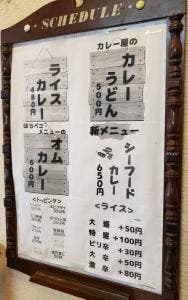 SCHEDULE
カレー屋の
カレーうどん
500円
新メニュー
シーフードカレー
650円
<ライス>
大盛 +50円
特盛 +100円
ピリ辛 +30円
大辛 +50円
激辛 +80円
ライスカレー
480円
はらペコメニューの
オムカレー
600円
<トッピング>